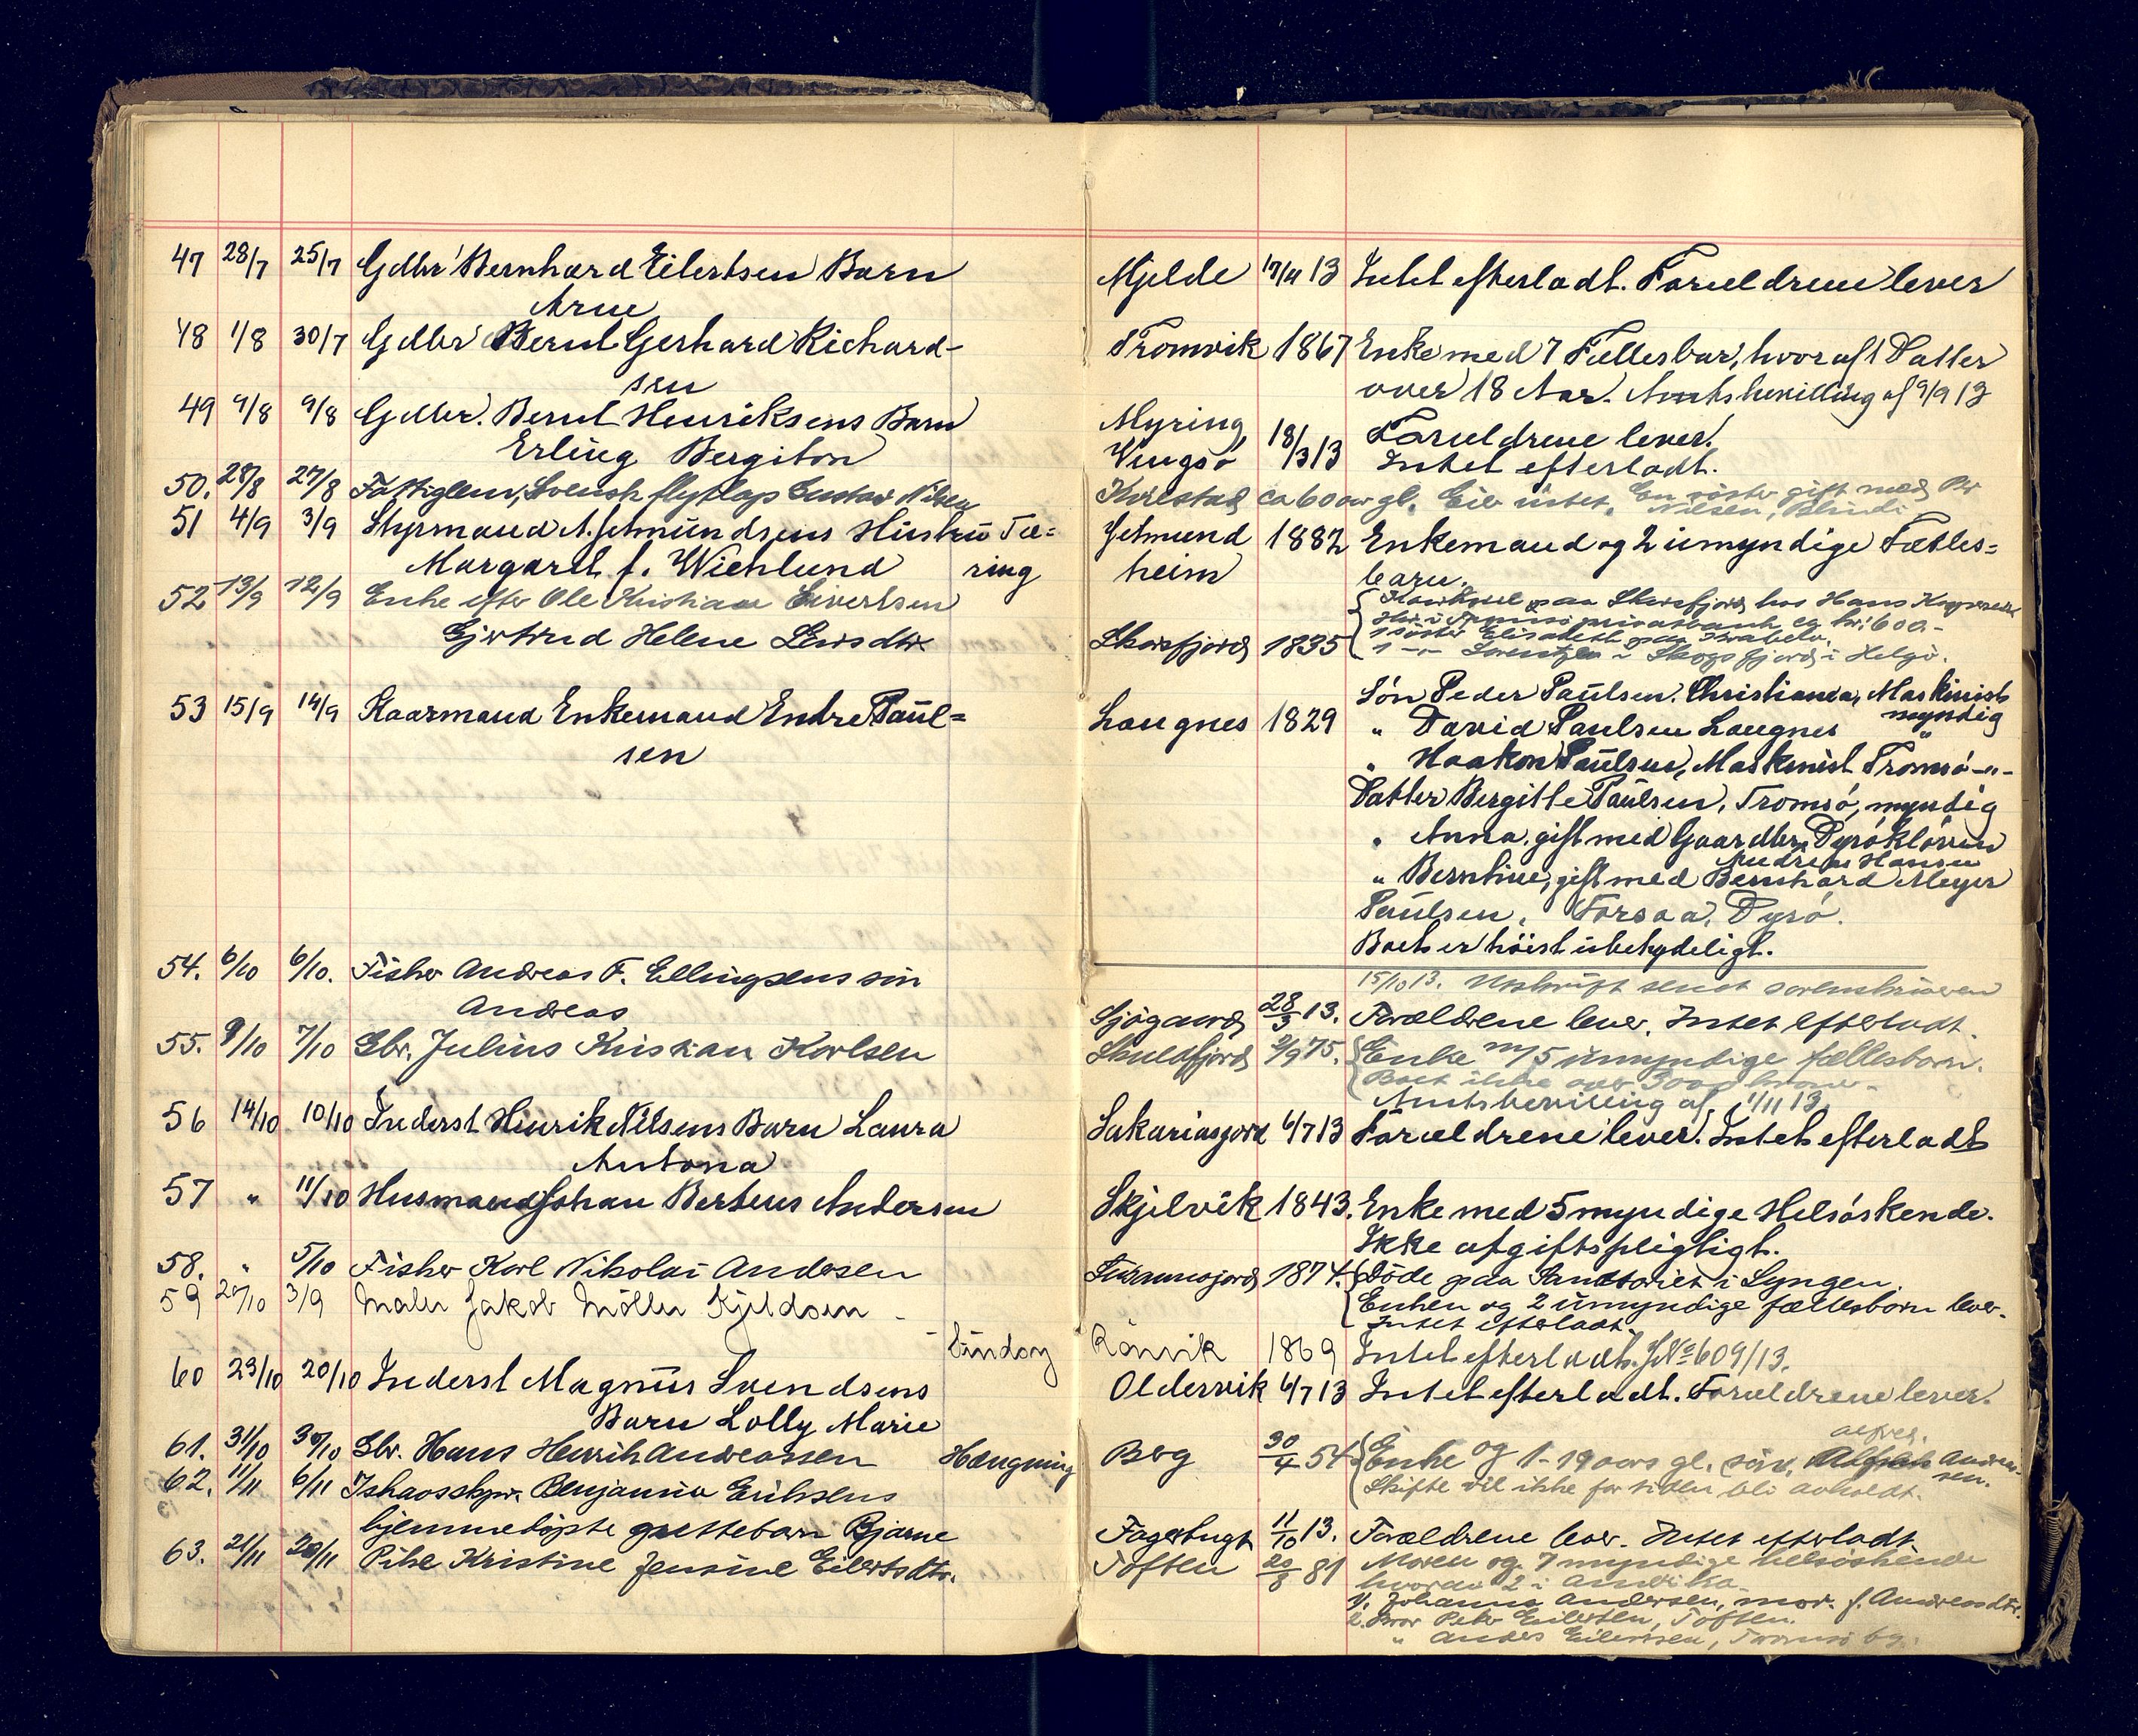 47 28/7 25/7 Gdbr Bernhard Eilertsen Barn Mjelde 17/4 13 Intet efterladt. Forældrene lever
Arne
48 1/8 30/7 Gdbr Bernt Gerhard Richard- Tromvik 1867 Enke med 7 Fællesbar, hvoraf 1 Datter
sen over 18 Aar. Amtsbevilling af 9/9 13
49 9/8 9/8 Gdbr. Bernt Henriksens Barn Myring, 18/3 13 Forældrene lever.
Erling Bergiton Vengsö Intet efterladt.
50. 28/8 27/8 Fattiglem, Svensk flytlap Gustav Nilsen ca 60 aar gl. Eier intet. En söster gift med Per
Nilsen,
51 4/9 3/9 Styrmand A. Jetmundsens Hustru Tæ= Jetmund 1882 Enkemand og 2 umyndige Fælles=
Margaret f. Wichlund ring heim barn.
52 13/9 12/9 Enke efter Ole Kristian Sivertsen paa Skarsfjord hos Hans
Hr. i Tromsö privatbank ca kr. 600.-
Gjertrud Helene Larsdtr Skarsfjord 1835 1 söster Elisabeth paa
1 -"- i Skogsfjord i Helgö.
53 15/9 14/9 Kaarmand Enkemand Endre Paul= Langnes 1829 Sön Peder Paulsen. Christiania, Maskinist
myndig
sen " David Paulsen Langnes "
" Haakon Paulsen, Maskinist Tromsö -"-
Datter Bergitte Paulsen, Tromsö, myndig
" Anna, gift med Gaardbr. Dyröklöven
Andreas Hansen
" Berntine, gift med Bernhard Meyer
Paulsen, Forsaa, Dyrö.
Boet er höist ubetydeligt.
15/10 13. Utskrift sendt sorenskriveren
54. 6/10 6/10. Fisker Andreas F. Ellingsens sön
Andreas Sjögaard 28/3 13. Forældrene lever. Intet efterladt.
55. 9/10 7/10 Gbr. Julius Kristian Karlsen Skulsfjord 2/9 75. Enke m/ 5 umyndige fællesbarn.
Boet ikke over 3000 kroner.
Amtsbevilling af 1/11 13
56 14/10 10/10 Inderst Hinrik Nilsens Barn Laura Sakariasjord 6/7 13 Forældrene lever. Intet efterladt
Antona
57 " 11/10 Husmand Johan Berteus Andersen Skjelvik 1843. Enke med 5 myndige Helsöskende.
Ikke afgiftspligtigt.
58. " 5/10 Fisker Karl Nikolai Andersen 1874. Döde paa Sanatoriet i Lyngen.
Enken og 2 umyndige fællesbarn lever.
Intet efterladt.
59 20/10 3/9 Maler Jakob Möller Kjeldsen -
Lindoy Rönvik 1869 Intet efterladt. J.No 609/13.
60 23/10 20/10 Inderst Magnus Svendsens Oldervik 6/7 13 Intet efterladt. Forældrene lever.
Barn Lolly Marie
61. 31/10 30/10 Gbr. Hans Henrik Andreassen Hængning Berg 30/4 54 Enke og 1 - 19 aars gl. sön, Alfred Andreas-
sen.
Skifte vil ikke for tiden bli avholdt.
62. 11/11 6/11 Ishavsskpr. Benjamin Eriksens
hjemmedöpte guttebarn Bjarne Fagerbugt 11/10 13. Forældrene lever. Intet efterladt.
63. 21/11 20/11 Pike Kristine Jensine Eilertsdtr. Toften 20/8 81 Moren og 7 myndige helsöskende
hvorav 2 i Amerika.
1. Johanna Andersen, mor. f. Andreasdtr.
2. Bror Peder Eilertsen, Toften.
" Anders Eilertsen, Tromsö by.